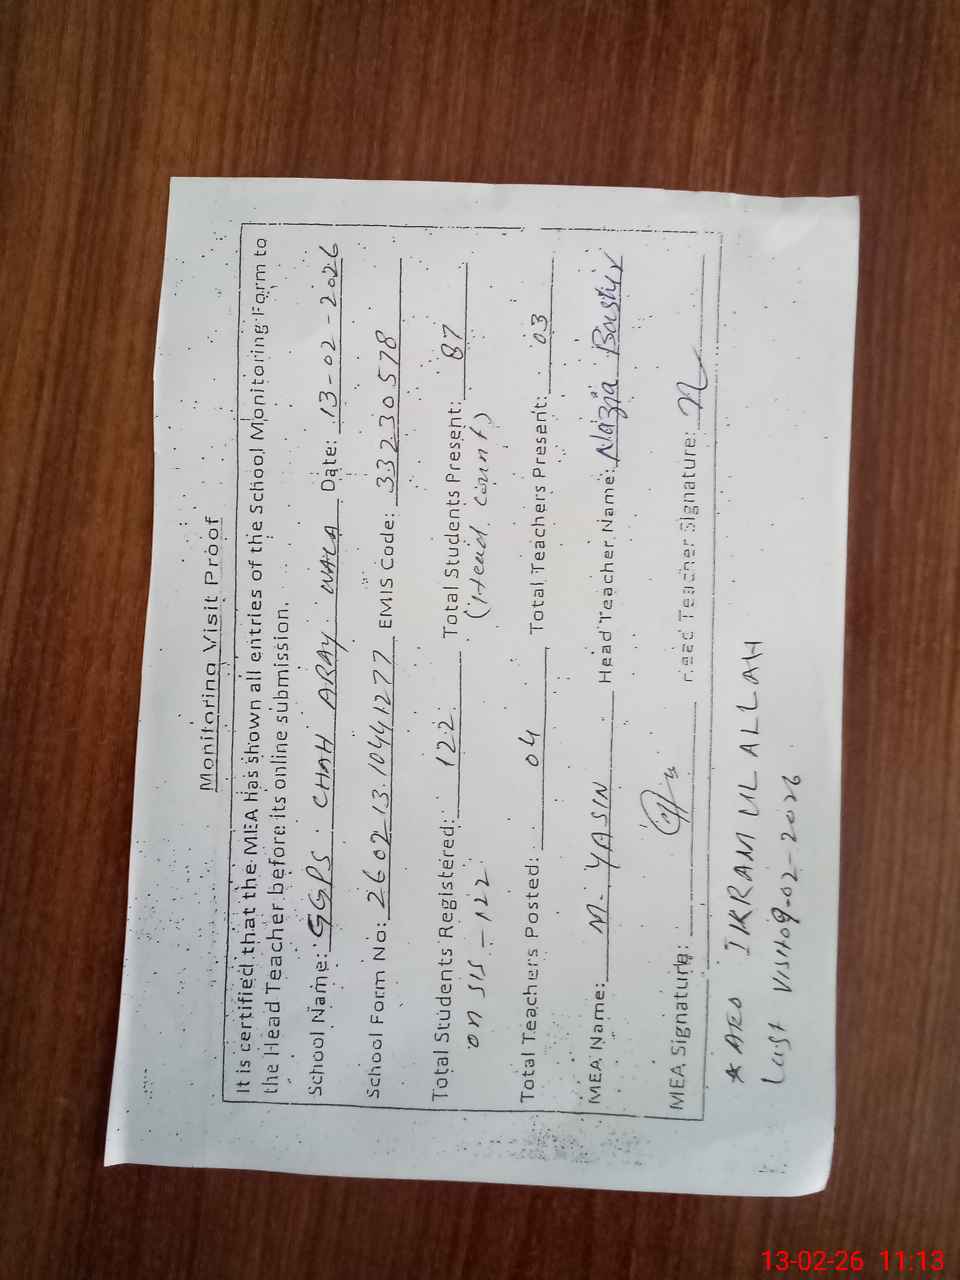 Monitoring Visit Proof
It is certified that the MEA has shown all entries of the School Monitoring Form to
the Head Teacher before its online submission.
School Name: GGPS CHAH ARAY WALA Date: 13-02-2026
School Form No: 2602-13.10441277 EMIS Code: 33230578
Total Students Registered: 122 Total Students Present: 87
on SIS - 122 (Head Count)
Total Teachers Posted: 04 Total Teachers Present: 03
MEA Name: M. YASIN Head Teacher Name: Nazia Bashir
MEA Signature: Head Teacher Signature:
* AEO IKRAM UL ALLAH
Last Visit 09-02-2026
13-02-26 11:13